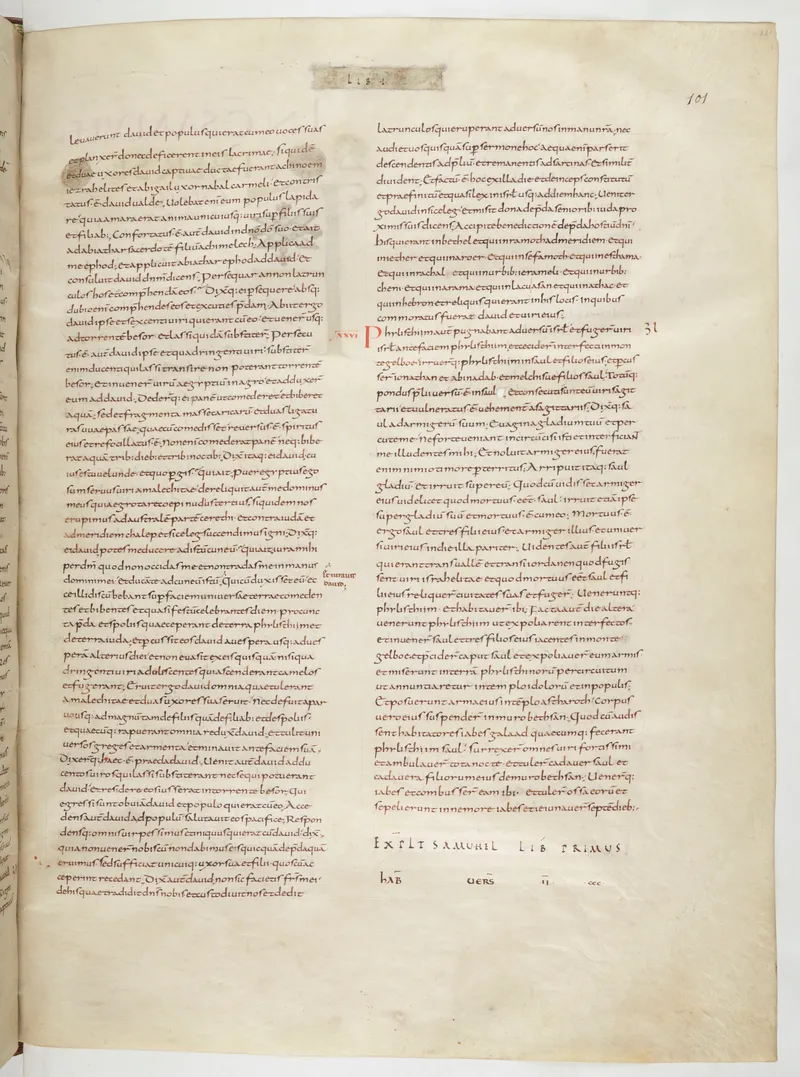 LIB I
101
Leuauerunt dauid et populus qui erat cum eo uoces suas
et planxer̄ donec deficerent in eis lacrimae; siquidē
et duae uxores dauid captiuae ductae fuerant achinoem
iezrahelites et abigail uxor nabal carmeli· et contris
tatus ē dauid ualde; Uolebat enī eum populus lapida
re quia amara erat anima uniuscuiusq: uiri sup filiis suis
et filiabus; Confortatus ē autē dauid in dn̄o dō suo et ait
ad abiathar sacerdotē filiū achimelech; Applica ad
me ephod; et applicuit abiathar ephod ad dauid· et
consuluit dauid dn̄m dicens; Persequar an non latrun
culos hos et comp̄hendā eos; Dixitq: ei persequere absq:
dubio enī comp̄hendes eos et excuties p̄dam; Abiit ergo
dauid ipse et sexcenti uiri qui erant cū eo· et uener̄ usq:
ad torrentē besor· et lassi quidā substiter̄; Persecu
tus ē autē dauid ipse et quadringenti uiri· substiter̄
enim ducenti qui lassi transire non poterant torrentē
besor; et inuener̄ uirū aegyptiū in agro et adduxer̄
eum ad dauid; Deder̄q: ei panē ut comederet et biberet
aquā; sed et fragmenta massae caricarū et duas ligatu
ras uuae passae; quae cū comedisset reuersus ē sp̄s
eius et refocillatus ē; Non enī comederat panē neq: bibe
rat aquā tribus diebus et tribus noctibus; Dixit itaq: ei dauid· cu
ius es tu uel unde· et quo pergis; Qui ait; Puer aegyptius ego
sum seruus uiri amalechitae· dereliquit autē me dominus
meus quia aegrotare coepi nudiustertius; siquidem nos
erupimus ad australē partē cerethi· et contra iudā et
ad meridiem chaleb et siceleg succendimus igni; Dixitq:
ei dauid· potes me ducere ad istū cuneū; Qui ait iura mihi
per dm̄ quod non occidas me et non tradas me in manus
domini mei· et ducā te ad cuneū istū; Qui cū duxisset eū· ec
ce illi discūbebant sup faciem uniuersae terrae comeden
tes et bibentes et quasi festū celebrantes diem· pro cunc
ta p̄da et spoliis quae ceperant de terra phylisthim et
de terra iuda; et percussit eos dauid a uespera usq: ad ues
perā alterius diei· et non euasit ex eis quisquā nisi qua
dringenti uiri adulescentes qui ascenderant camelos
et fugerant; Eruit ergo dauid omnia quae tulerant
amalechitae et duas uxores suas eruit· nec defuit a par
uo usq: ad magnū tam de filiis quā de filiabus et de spoliis·
et quaecūq: rapuerant omnia reduxit dauid· et tulit uni
uersos greges et armenta et minauit ante faciem suā·
Dixerq: haec ē praeda dauid; Uenit autē dauid ad du
centos uiros qui lassi substiterant nec sequi potuerant
dauid· et residere eos iusserat in torrente besor; Qui
egressi sunt obuiā dauid et populo qui erat cū eo; Acce
dens autē dauid ad populū salutauit eos pacifice; Respon
densq: omnis uir pessimus et iniquus qui erat cū dauid· dixit·
quia non uener̄ nobiscū non dabimus eis quicquā de p̄da quā
eruimus· sed sufficiat unicuiq: uxor sua et filii· quos cū ac
ceperint recedant; Dixit autē dauid· non sic facietis fr̄s mei
de his quae tradidit dn̄s nobis et custodiuit nos et dedit
latrunculos qui eruperant aduersū nos in manu nr̄a; nec
audiet uos quisquā sup sermone hoc· Aequa enī pars erit
descendentis ad p̄liū et remanentis ad sarcinas· et similit̄
diuident; Et factū ē hoc ex illa die et deinceps constitutū
et praefinitū et quasi lex in isrl̄ usq: ad diem hanc; Uenit er
go dauid in siceleg· et misit dona de p̄da senioribus iuda pro
ximis suis dicens; Accipite benedictionē de p̄da hostiū dn̄i;
his qui erant in bethel et qui in ramoth ad meridiem et qui
in iether et qui in aroer· et qui in sefamoth et qui in esthama·
et qui in rachal· et qui in urbibus ierameli· et qui in urbibus
cheni· et qui in arama et qui in lacu asan et qui in athac· et
qui in hebron· et reliquis qui erant in his locis· in quibus
commoratus fuerat dauid et uiri eius;
XXVI Phylisthiim autē pugnabant aduersū isrl̄· et fuger̄ uiri
31
isrl̄ ante faciem phylisthiim· et cecider̄ interfecti in mon
te gelboe· irruerq: phylisthiim in saul et filios eius· et percus
ser̄ ionathan et abinadab et melchisue filios saul· Totūq:
pondus p̄lii uersū ē in saul et consecuti sunt eū uiri sagit
tarii et uulneratus ē uehementer a sagittariis; Dixitq: sa
ul ad armigerū suum; Euagina gladium tuū et per
cute me· ne forte ueniant incircūcisi isti et interficiant
me illudentes mihi; Et noluit armiger eius; fuerat
enim nimio amore perterritus; Arripuit itaq: saul
gladiū et irruit super eū; Quod cū uidisset armiger
eius uidelicet quod mortuus eēt saul· irruit etiā ipse
super gladiū suū et mortuus ē cum eo; Mortuus ē
ergo saul et tres filii eius et armiger illius et uniuer
si uiri eius in die illa pariter; Uidentes autē filii isrl̄
qui erant trans uallē et trans iordanen quod fugis
sent uiri israhelitae· et quod mortuus eēt saul et fi
lii eius· reliquer̄ ciuitates suas et fuger̄; Ueneruntq:
phylisthiim· et habitauer̄ ibi; Facta autē die altera
uenerunt phylisthiim ut expoliarent interfectos;
et inuener̄ saul et tres filios eius iacentes in monte
gelboe· et p̄cider̄ caput saul et expoliauer̄ eum armis·
et miser̄ in terrā phylisthinorū per circuitum
ut annuntiaretur in templo idolorū et in populis;
Et posuerunt arma eius in templo astharoth· Corpus
uero eius suspender̄ in muro bethsan; Quod cū audis
sent habitatores iabes galaad quaecumq: fecerant
phylisthiim saul· surrexer̄ omnes uiri fortissimi
et ambulauer̄ tota nocte· et tuler̄ cadauer saul et
cadauera filiorum eius de muro bethsan; Uener̄q:
iabes et combusser̄ eam ibi· et tuler̄ ossa eorū et
sepelierunt in nemore iabes et ieiunauer̄ septē dieb:·
EXPLT SAMUHIL LIB PRIMUS
HAB UERS II CCC